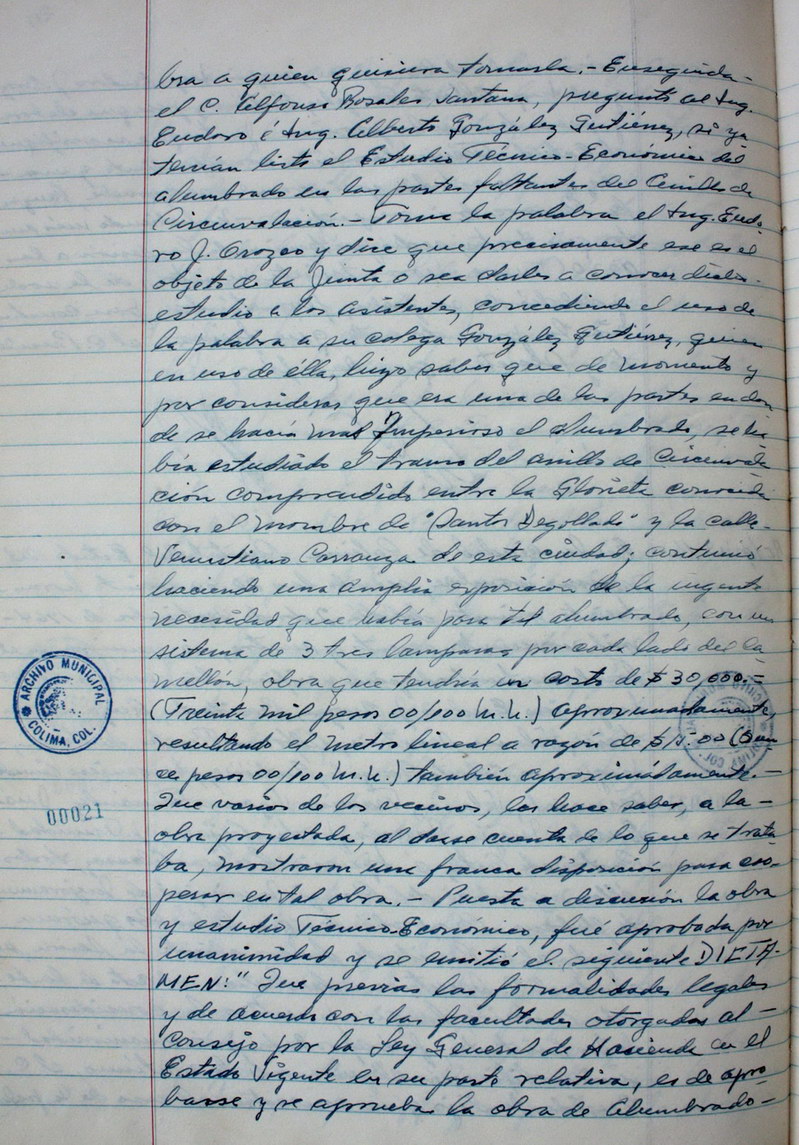 bra a quien quisiera tomarla.- Enseguida-
el C. Alfonso Rosales Santana, preguntó al Ing.
Eudoro é Ing. Alberto González Gutiérrez, si ya
tenían listo el Estudio Técnico-Económico del
alumbrado en las partes faltantes del Anillo de
Circunvalación.- Toma la palabra el Ing. Eudo-
ro J. Orozco y dice que precisamente ese es el
objeto de la Junta o sea darles a conocer dicho-
estudio a los asistentes, concediendo el uso de
la palabra a su colega González Gutiérrez, quien
en uso de élla, hizo saber que de momento y
por considerar que era una de las partes en don
de se hacía mas Imperioso el alumbrado, se ha
bía estudiado el tramo del anillo de Circunvala
ción comprendido entre la Glorieta conocida
con el nombre de "Santos Degollado" y la calle-
Venustiano Carranza de esta ciudad; continuó
haciendo una amplia exposición de la urgente
necesidad que había para tal alumbrado, con un
sistema de 3 tres lamparas por cada lado del ca
mellón, obra que tendría un costo de $30,000.-
(Treinta mil pesos 00/100 M.N.) aproximadamente
resultando el metro lineal a razón de $15.00 (Quin
ce pesos 00/100 M.N.) también aproximadamente.-
Que varios de los vecinos, les hace saber, a la-
obra proyectada, al darse cuenta de lo que se trata
ba, mostraron una franca disposición para coo-
perar en tal obra.- Puesta a discusión la obra
y estudio Técnico-Económico, fué aprobada por
unanimidad y se emitió el siguiente DICTA-
MEN: "Que previas las formalidades legales
y de acuerdo con las facultades otorgadas al-
Consejo por la Ley General de Hacienda en el
Estado Vigente en su parte relativa, es de apro-
barse y se aprueba la obra de Alumbrado-
ARCHIVO MUNICIPAL
COLIMA, COL.
00021